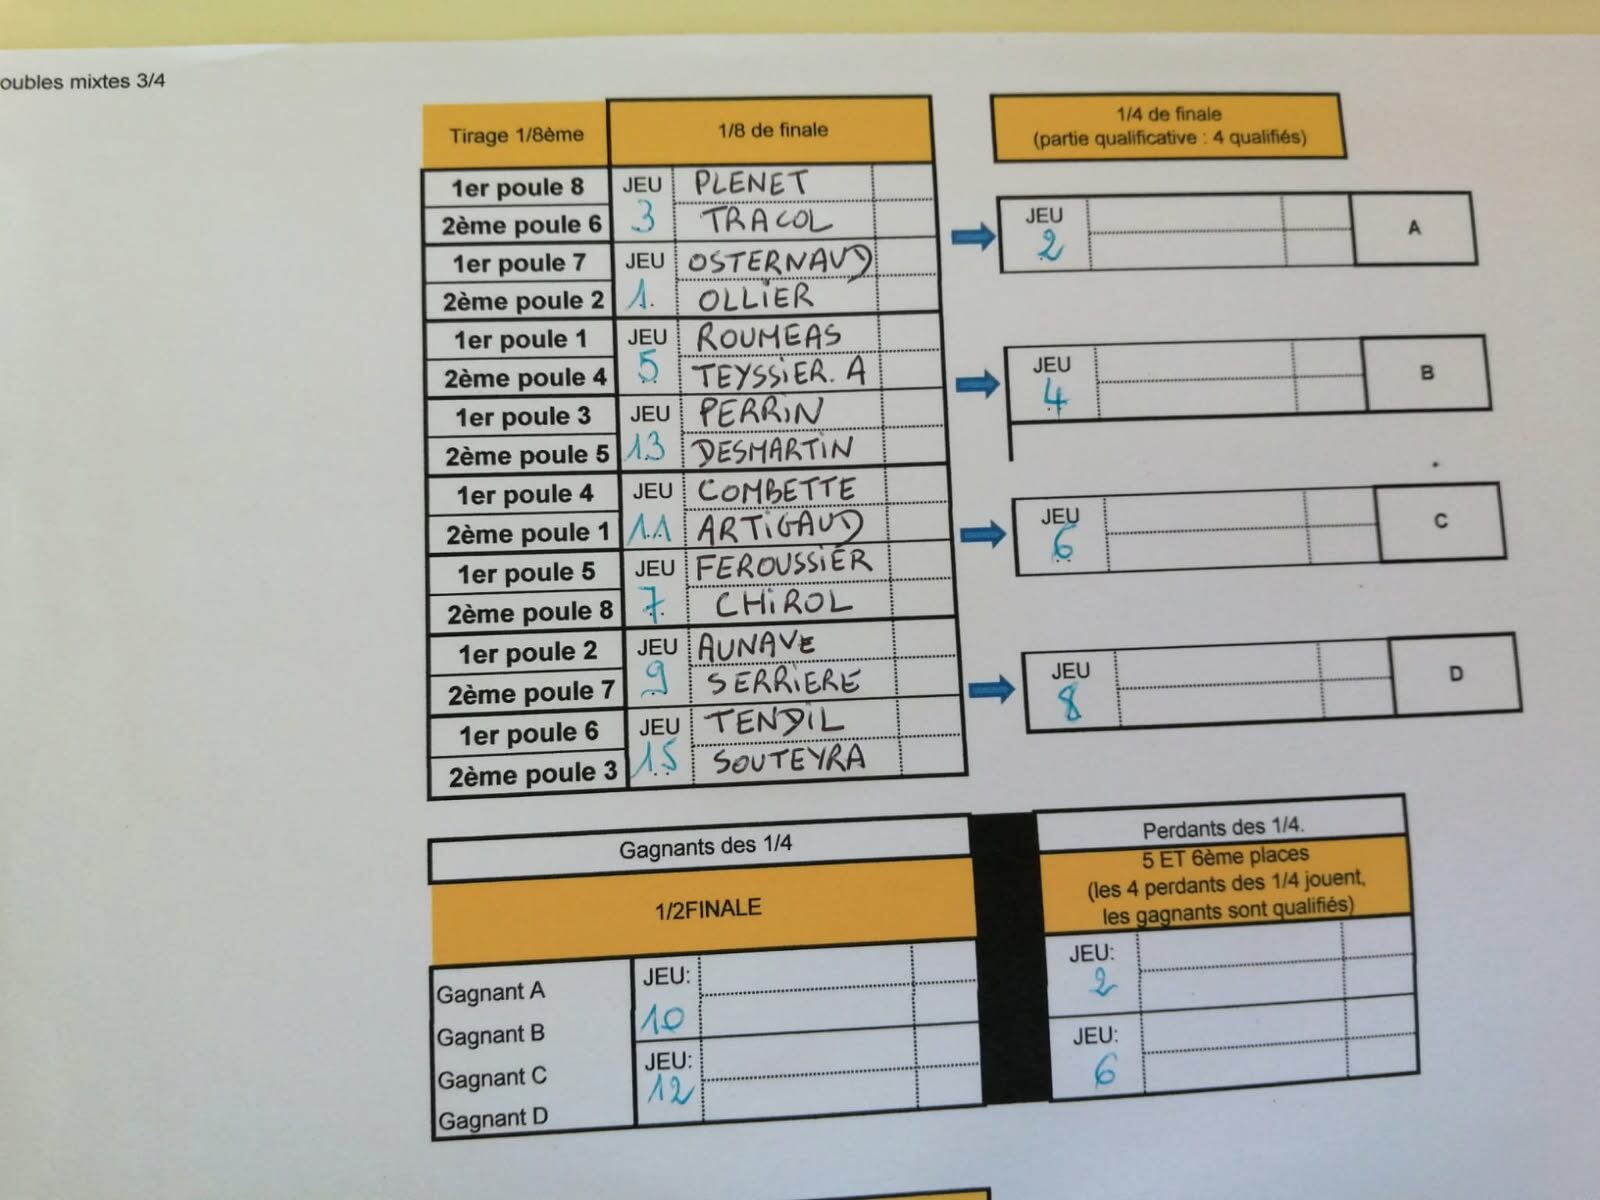 oubles mixtes 3/4
Tirage 1/8ème
1/8 de finale
1/4 de finale
(partie qualificative : 4 qualifiés)
1er poule 8
JEU
3
PLENET
2ème poule 6
TRACOL
1er poule 7
JEU
1.
OSTERNAUD
2ème poule 2
OLLIER
1er poule 1
JEU
5
ROUMEAS
2ème poule 4
TEYSSIER. A
1er poule 3
JEU
13
PERRIN
2ème poule 5
DESMARTIN
1er poule 4
JEU
11
COMBETTE
2ème poule 1
ARTIGAUD
1er poule 5
JEU
7
FEROUSSIER
2ème poule 8
CHIROL
1er poule 2
JEU
9
AUNAVE
2ème poule 7
SERRIERE
1er poule 6
JEU
15
TENDIL
2ème poule 3
SOUTEYRA
JEU
2
A
JEU
4
B
JEU
6
C
JEU
8
D
Gagnants des 1/4
1/2FINALE
Gagnant A
Gagnant B
Gagnant C
Gagnant D
JEU:
10
JEU:
12
Perdants des 1/4.
5 ET 6ème places
(les 4 perdants des 1/4 jouent,
les gagnants sont qualifiés)
JEU:
2
JEU:
6